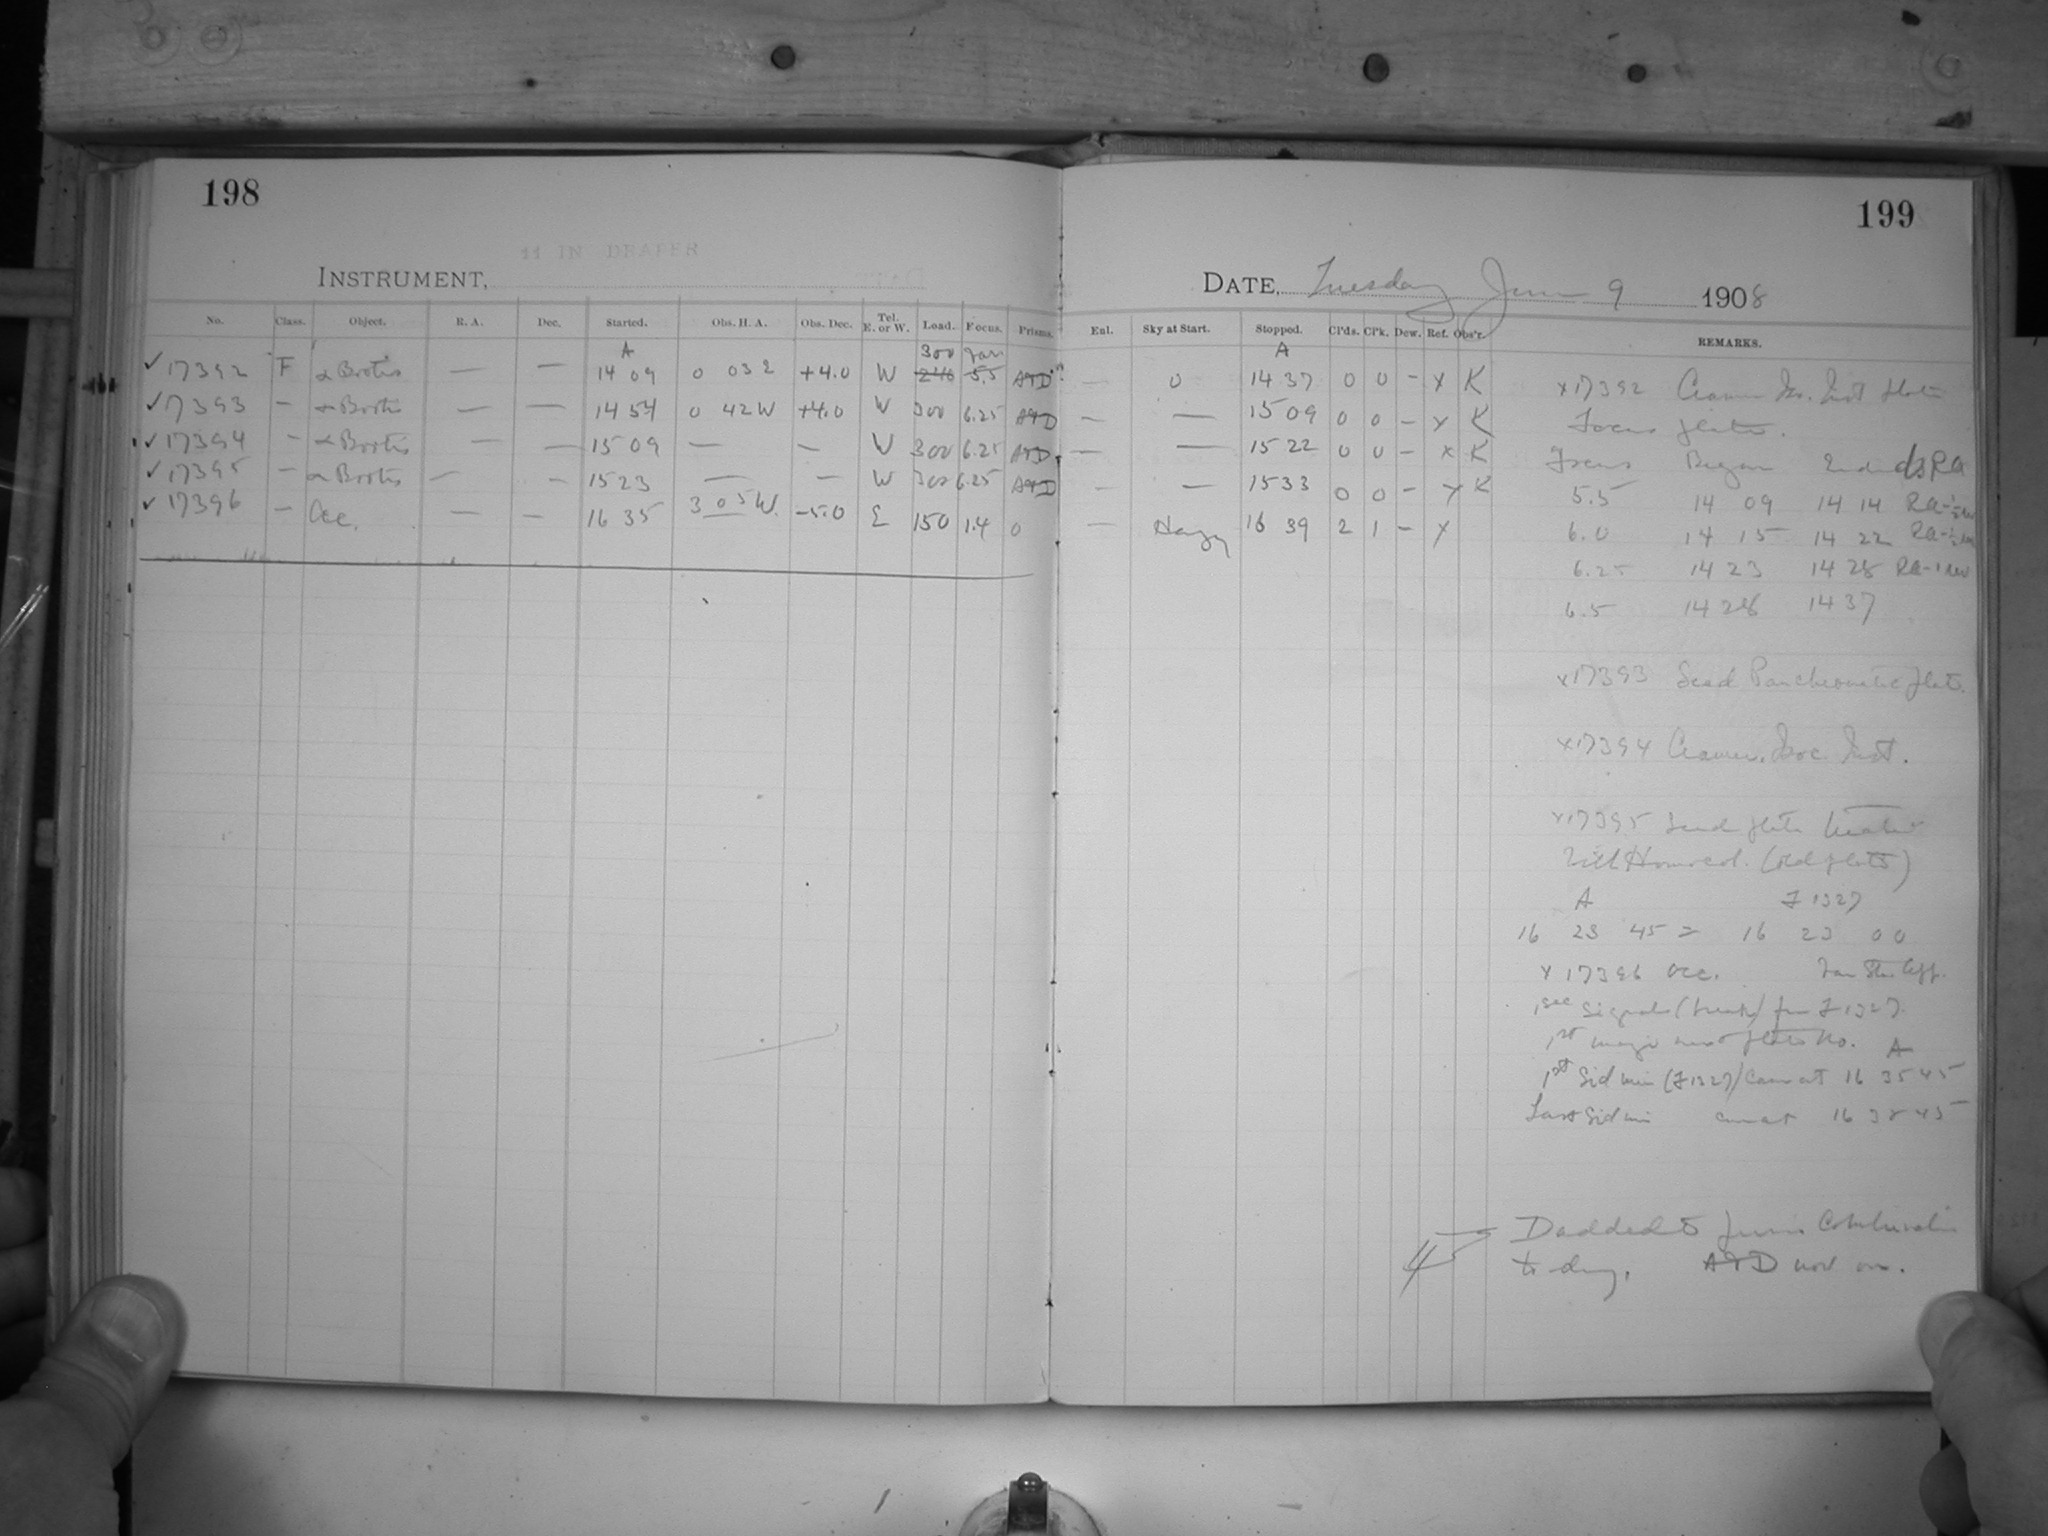 198
11 IN DRAPER
INSTRUMENT,
No. Class. Object. R. A. Dec. Started. Obs. H. A. Obs. Dec. Tel. E. or W. Load. Focus. Prisms.
A 300 Var
✓ 17392 F α Bootis — — 14 09 0 03 2 +4.0 W 240 5.5 A+D
✓ 17393 — α Bootis — — 14 54 0 42 W +4.0 W 300 6.25 A+D
✓ 17394 — α Bootis — — 15 09 — — W 300 6.25 A+D
✓ 17395 — α Bootis — — 15 23 — — W 300 6.25 A+D
✓ 17396 — Occ. — — 16 35 3 05 W. -5.0 E 150 1.4 0
199
DATE, Tuesday June 9 1908
Enl. Sky at Start. Stopped. Cl'ds. Cl'k. Dew. Ref. Obs'r. REMARKS.
A
— 0 14 37 0 0 — x K
— — 15 09 0 0 — x K
— — 15 22 0 0 — x K
— — 15 33 0 0 — x K
— Hazy 16 39 2 1 — x
x17392 Cramer Is. Inst plate
Focus plate.
Focus Began Ended ds RA
5.5 14 09 14 14 RA-½
6.0 14 15 14 22 RA-½
6.25 14 23 14 28 RA-1 rev
6.5 14 28 14 37
x17393 Seed Panchromatic plate.
x17394 Cramer. Isoc. Inst.
x17395 Seed plate treated
with Homocol. (old plate)
A F 1327
16 23 45 = 16 23 00
x 17396 Occ.
1 sec signals (break) from F 1327.
1st nearest plate No. A
1st Sid min (F1327) came at 16 35 45
Last Sid min came at 16 38 45
D added to prism combination
to day. A+D now on.